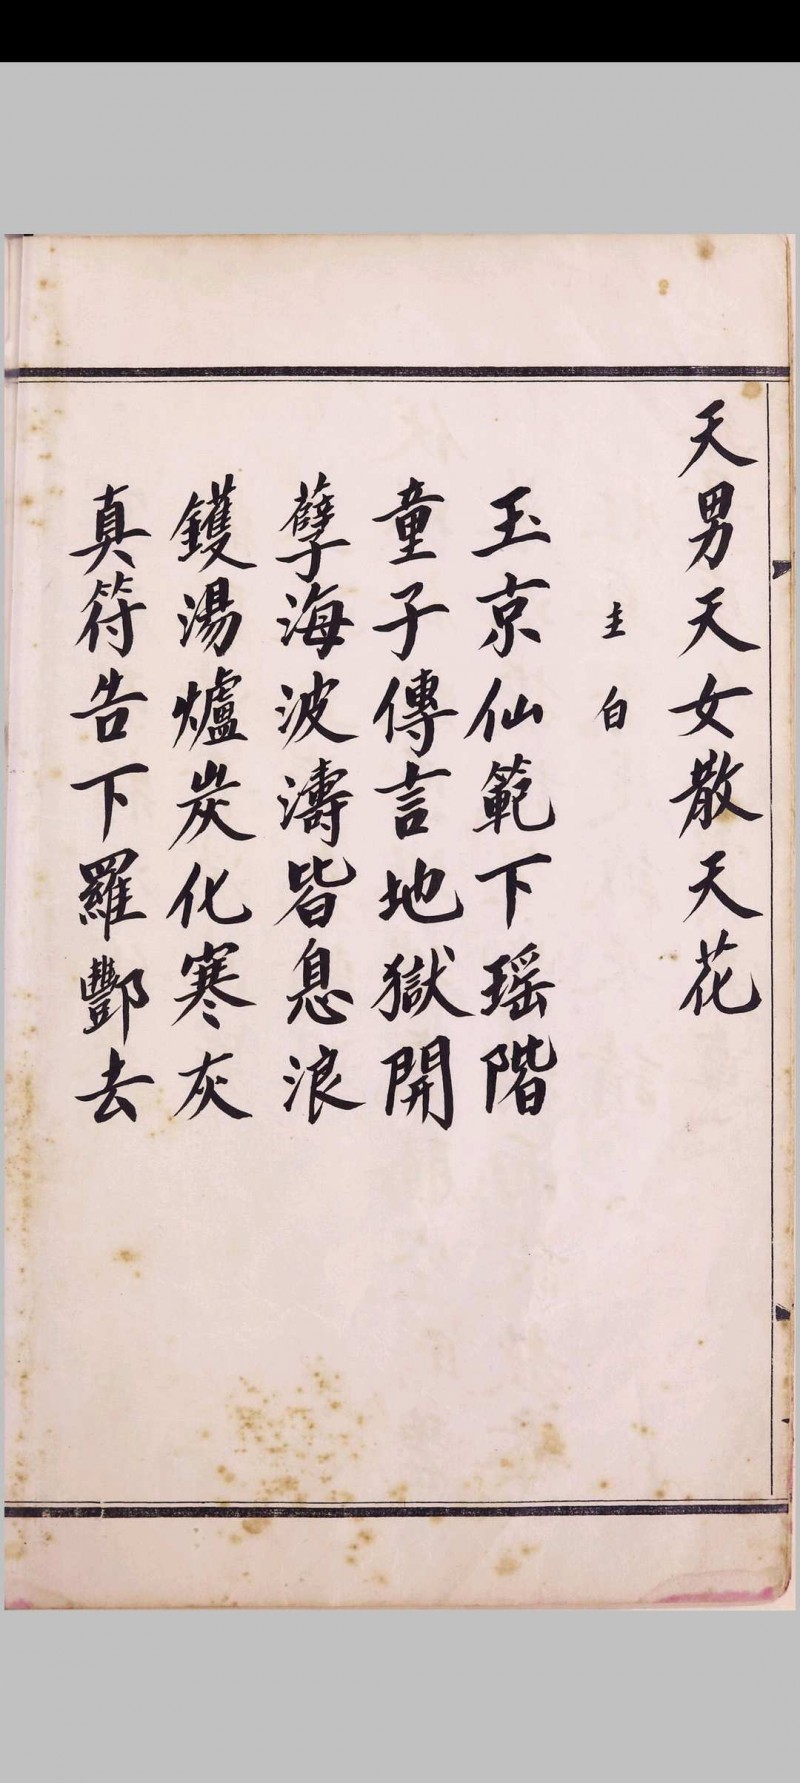 天男天女散天花
主白
玉京仙範下瑶階
童子傳言地獄開
孽海波濤皆息浪
鑊湯爐炭化寒灰
真符告下羅酆去